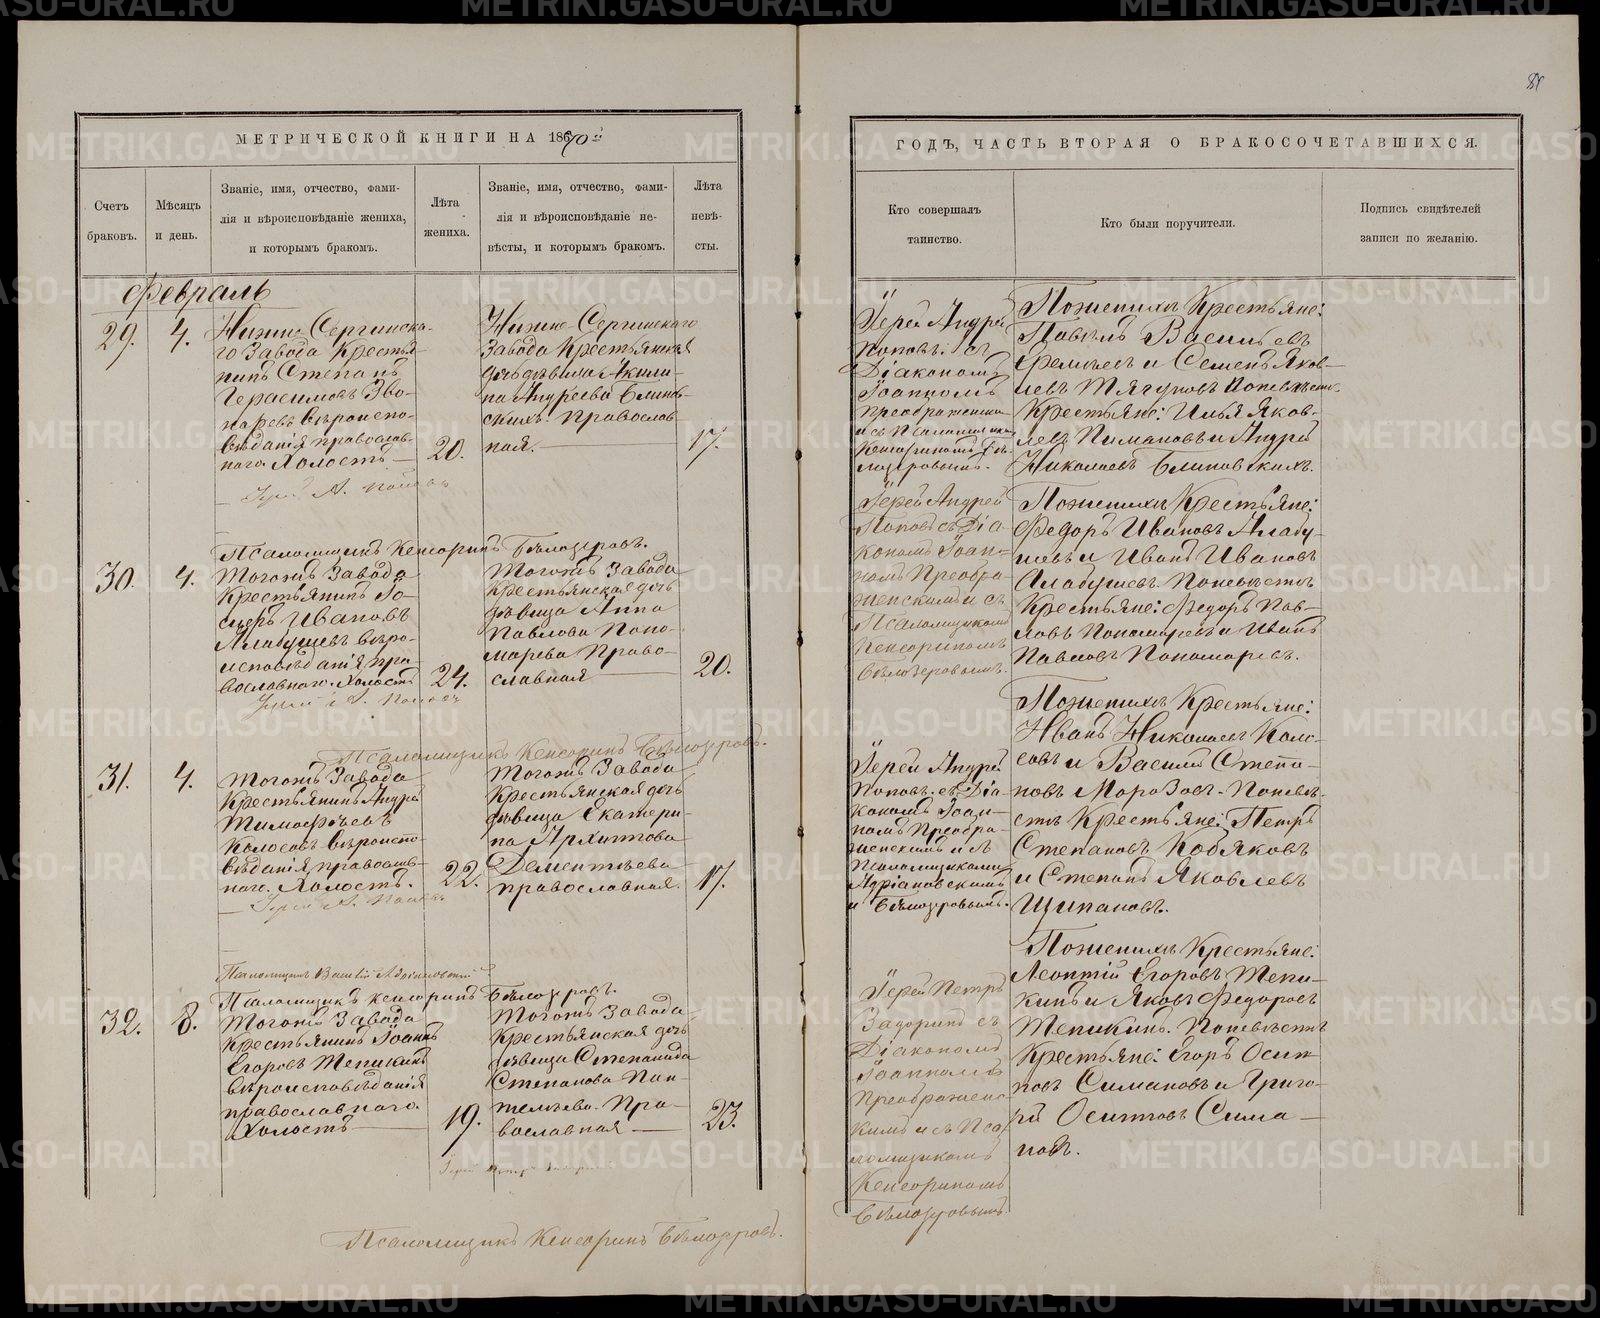 МЕТРИЧЕСКОЙ КНИГИ НА 1870й
Счетъ браковъ.
Мѣсяцъ и день.
Званіе, имя, отчество, фами-
лія и вѣроисповѣданіе жениха,
и которымъ бракомъ.
Лѣта
жениха.
Званіе, имя, отчество, фами-
лія и вѣроисповѣданіе не-
вѣсты, и которымъ бракомъ.
Лѣта
невѣ-
сты.
Февраль
29. 4.
Нижне-Сергинска-
го Завода Крестья-
нинъ Степанъ
Герасимовъ Зво-
наревъ вѣроиспо-
вѣданія православ-
наго. Холостъ
20.
Нижне-Сергинскаго
Завода Крестьянская
дочь дѣвица Акили-
на Андреева Блинов-
скихъ. Православ
ная.
17.
Іерей А. Поповъ
Псаломщикъ Кенсоринъ Бѣлозеровъ.
30. 4.
Тогожъ Завода
Крестьянинъ
Ивановъ
Алабушевъ вѣро-
исповѣданія пра-
вославнаго. Холостъ
24.
Тогожъ Завода
Крестьянская дочь
дѣвица Анна
Павлова Поно-
марева Право-
славная
20.
Іерей А. Поповъ
Псаломщикъ Кенсоринъ Бѣлозеровъ.
31. 4.
Тогожъ Завода
Крестьянинъ Андрей
Тимофѣевъ
Колосовъ вѣроиспо-
вѣданія православ-
наго. Холостъ.
22.
Тогожъ Завода
Крестьянская дочь
дѣвица Екатери-
на Архипова
Дементьева
православная.
17.
Іерей А. Поповъ
Псаломщикъ Василій Адріановскій
Псаломщикъ Кенсоринъ Бѣлозеровъ.
32. 8.
Тогожъ Завода
Крестьянинъ Іоаннъ
Егоровъ Тепикинъ
вѣроисповѣданія
православнаго.
Холостъ
19.
Тогожъ Завода
Крестьянская дочь
дѣвица Степанида
Степанова Пан-
телѣева. Пра-
вославная
23.
Іерей Петръ
Псаломщикъ Кенсоринъ Бѣлозеровъ.
ГОДЪ, ЧАСТЬ ВТОРАЯ О БРАКОСОЧЕТАВШИХСЯ.
Кто совершалъ
таинство.
Кто были поручители.
Подпись свидѣтелей
записи по желанію.
Іерей Андрей
Поповъ. съ
Діакономъ
Іоанномъ
Преображенски
и съ Псаломщико
Кенсориномъ Бѣ-
лозеровымъ.
Поженихѣ Крестьяне:
Павелъ Васильевъ
Еремѣевъ и Семенъ Яков-
левъ Тягуновъ Поневѣстѣ
Крестьяне: Илья Яков-
левъ Пимановъ и Андрей
Николаевъ Блиновскихъ.
Іерей Андрей
Поповъ съ Діа-
кономъ Іоан-
номъ Преобра-
женскимъ и съ
Псаломщикомъ
Кенсориномъ
Бѣлозеровымъ.
Поженихѣ Крестьяне:
Федоръ Ивановъ Алабу-
шевъ и Иванъ Ивановъ
Алабушевъ. Поневѣстѣ
Крестьяне: Федоръ Пав-
ловъ Пономаревъ и Иванъ
Павловъ Пономаревъ.
Іерей Андрей
Поповъ. съ Діа-
кономъ Іоан-
номъ Преобра-
женскимъ и съ
Псаломщиками
Адріановскимъ
и Бѣлозеровымъ.
Поженихѣ Крестьяне:
Иванъ Николаевъ Коло-
совъ и Василій Степа-
новъ Морозовъ. Поневѣ-
стѣ Крестьяне: Петръ
Степановъ Кобяковъ
и Степанъ Яковлевъ
Щипановъ.
Іерей Петръ
Задоринъ съ
Діакономъ
Іоанномъ
Преображенс-
кимъ и съ Пса-
ломщикомъ
Кенсориномъ
Бѣлозеровымъ.
Поженихѣ Крестьяне:
Леонтій Егоровъ Тепи-
кинъ и Яковъ Федоровъ
Тепикинъ. Поневѣстѣ
Крестьяне: Егоръ Осип-
повъ Симановъ и Григо-
рій Осиповъ Сима-
новъ.
METRIKI.GASO-URAL.RU